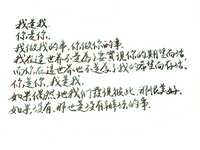 我是我.
你是你.
我做我的事,你做你的事.
我在这世界不是为了要实现你的期望而活,
而你在这世界也不是为了我的希望而存活.
你是你,我是我.
如果偶然地我们发现彼此,那很美好.
如果没有,那也是没有办法的事.